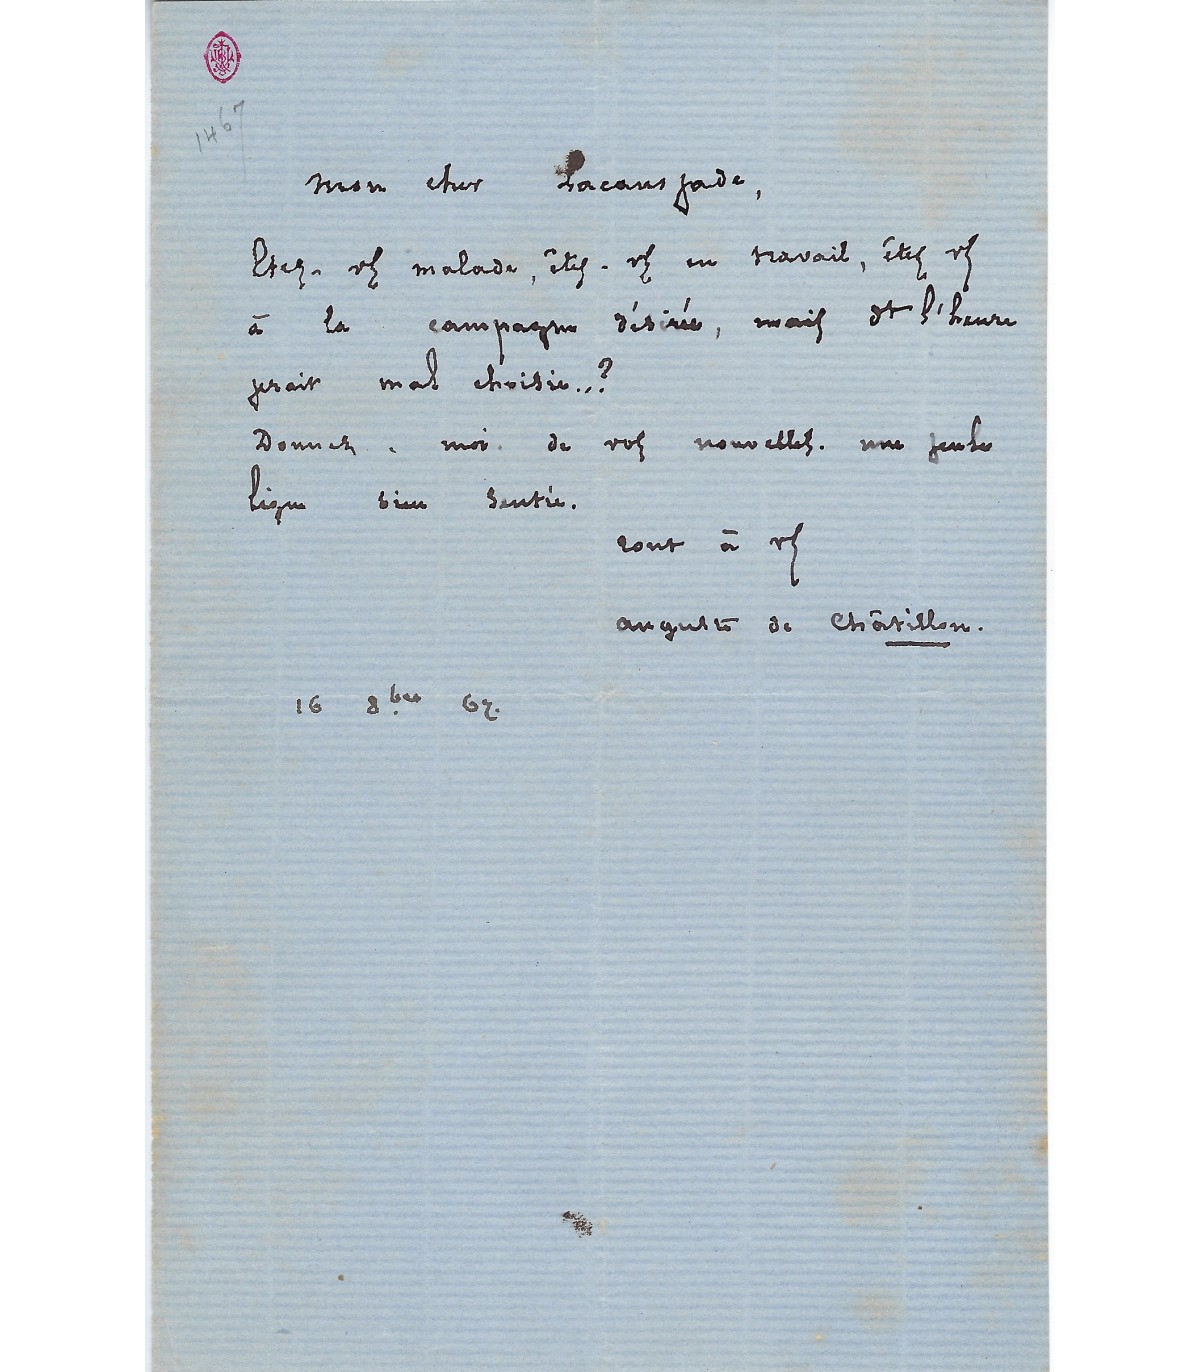 1467
Mon cher Lacaussade,
Etes-vs malade, êtes-vs en travail, êtes vs
à la campagne désirée, mais dt l'heure
serait mal choisie..?
Donnez-moi de vos nouvelles. une seule
ligne bien sentie.
tout à vs
auguste de Châtillon.
16 8bre 67.